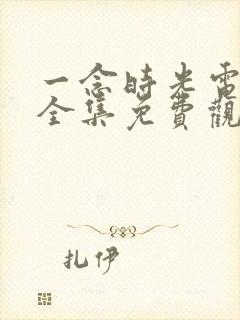 一念時光電
全集免費觀
扎伊